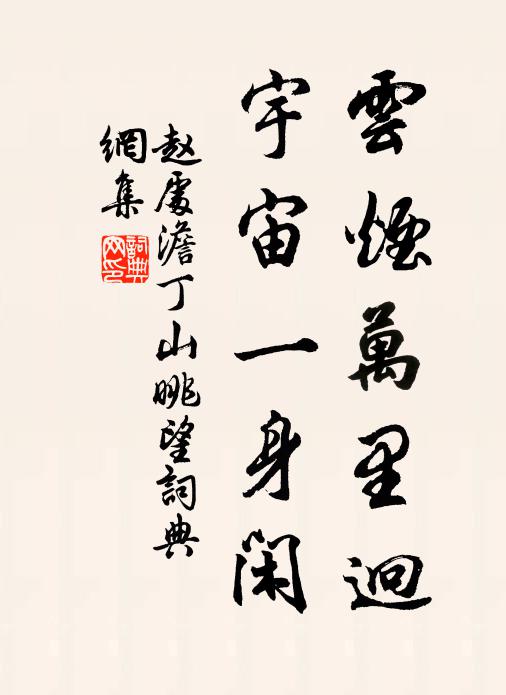 雲煙萬里迥
宇宙一身閑
趙處澹丁山眺望詞典
網集
詞典
网印